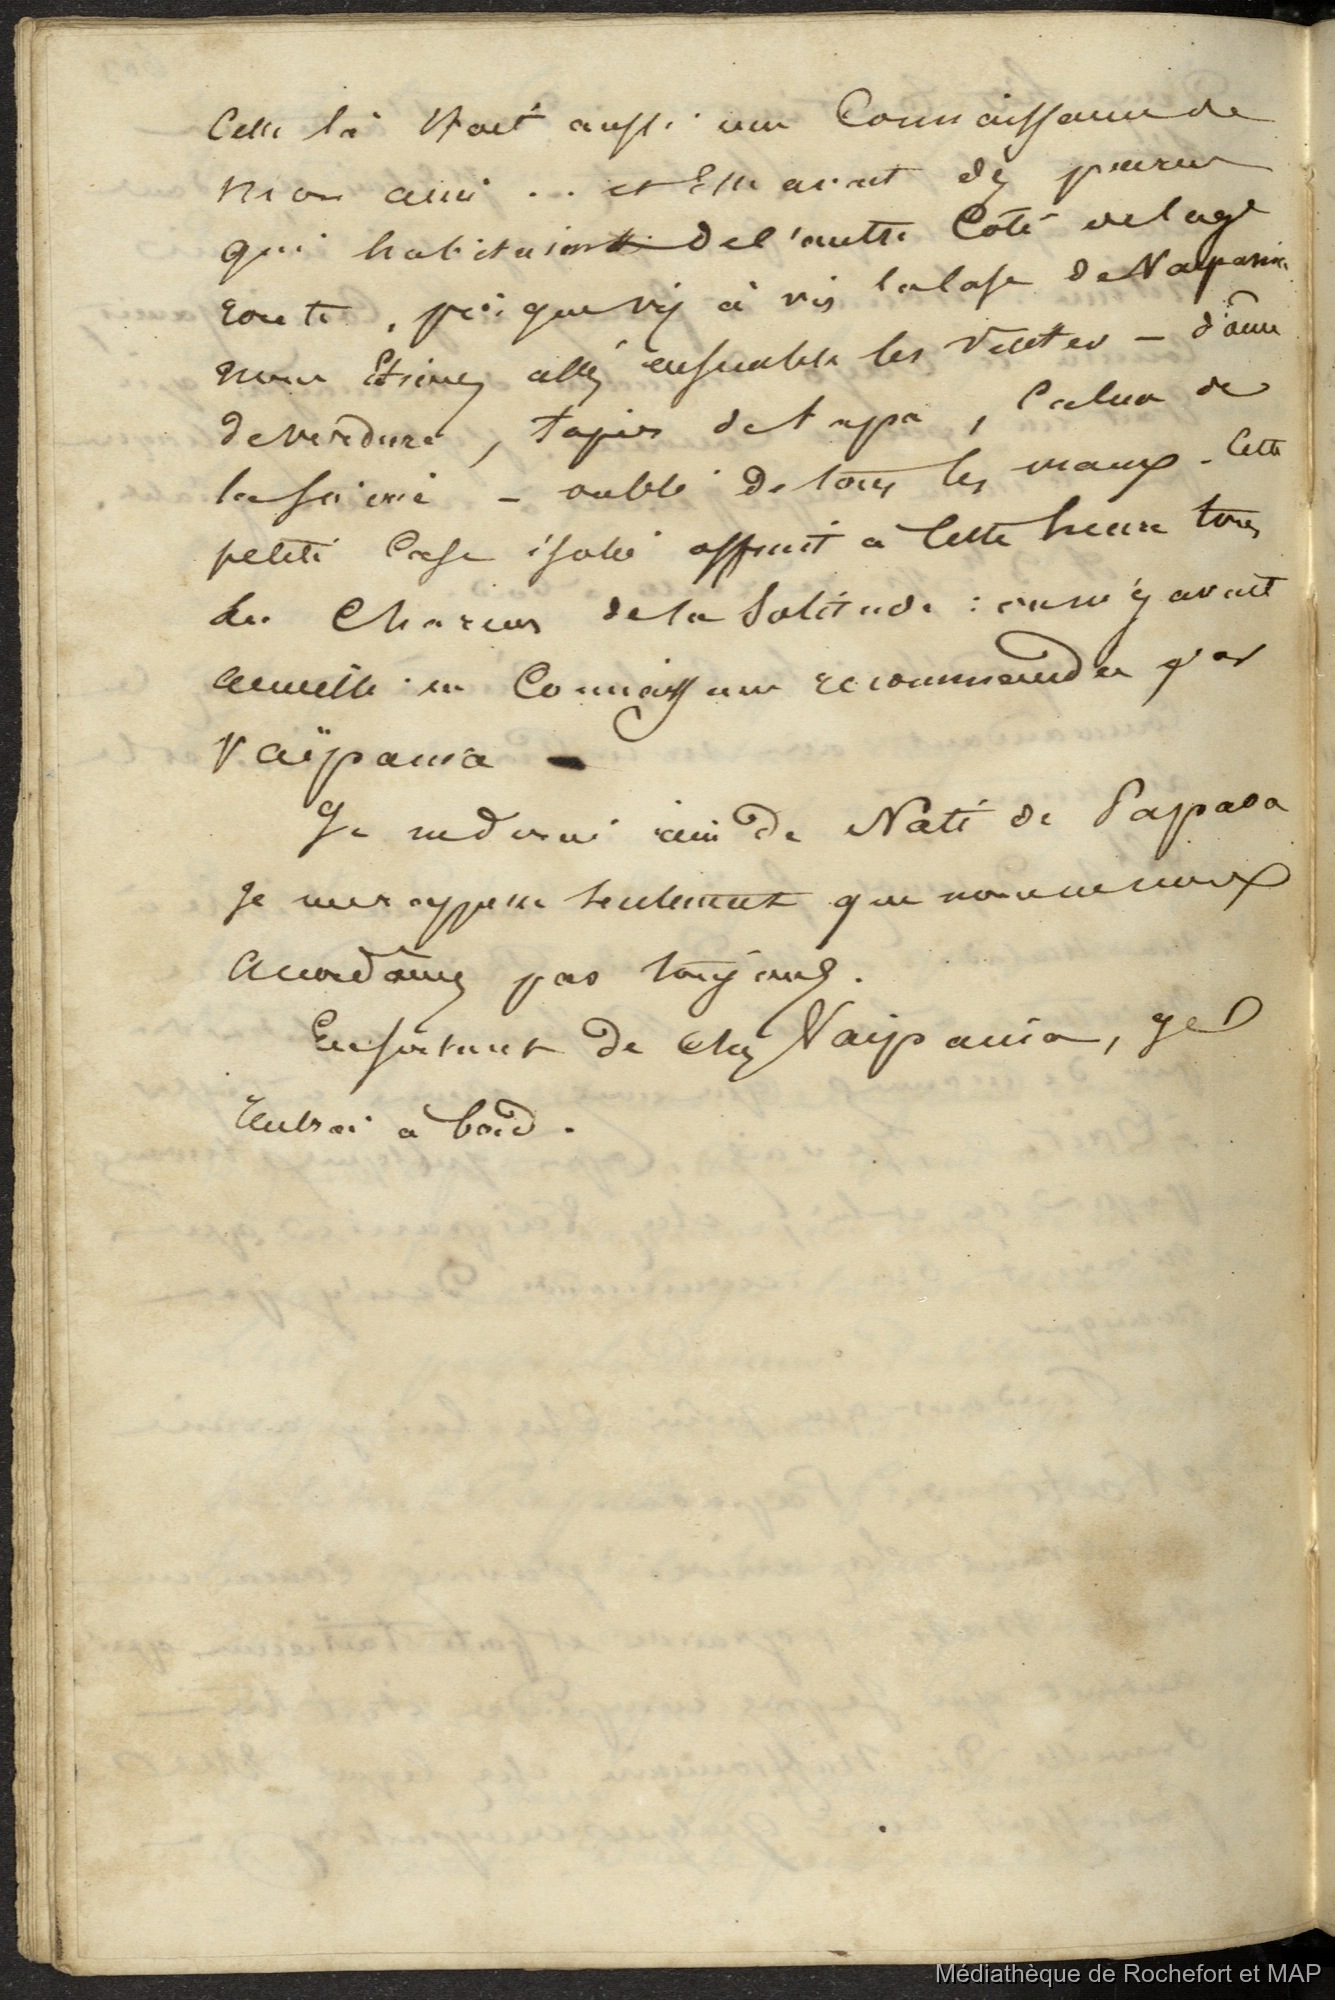 Celle là était aussi une Connaissance de
mon ami ... et Elle avait des parens
qui habitaient de l'autre Côté de la g^de
route, presque vis à vis la Case de Vaïpania
nous Etions allés ensemble les visiter – dôme
de verdure, tapis de tapa, Calme de
la soirée – oubli de tous les maux – Cette
petite Case isolée offrait à Cette heure tous
les Charmes de la Solitude : on m'y avait
accueilli en Connaissance recommandée par
Vaïpania –
Je ne dirai rien de Nati de Papara
Je me rappelle seulement que nous ne nous
accordâmes pas toujours.
En sortant de chez Vaïpania, je
rentrai à bord.
Médiathèque de Rochefort et MAP